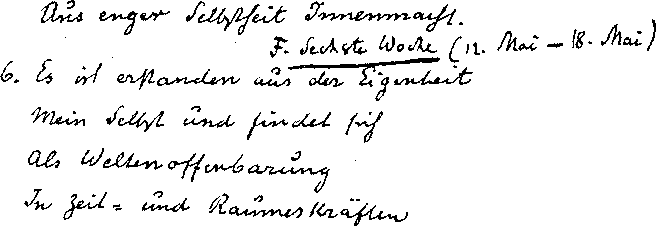 Aus enger Selbstheit Innenmacht.
F. Sechste Woche (12. Mai – 18. Mai)
6. Es ist erstanden aus der Eigenheit
Mein Selbst und findet sich
Als Weltenoffenbarung
In Zeit= und Raumeskräften